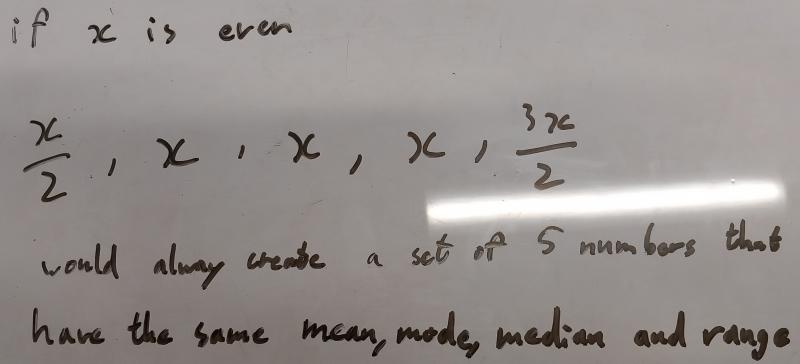 if x is even
x/2, x, x, x, 3x/2
would alway create a set of 5 numbers that
have the same mean, mode, median and range